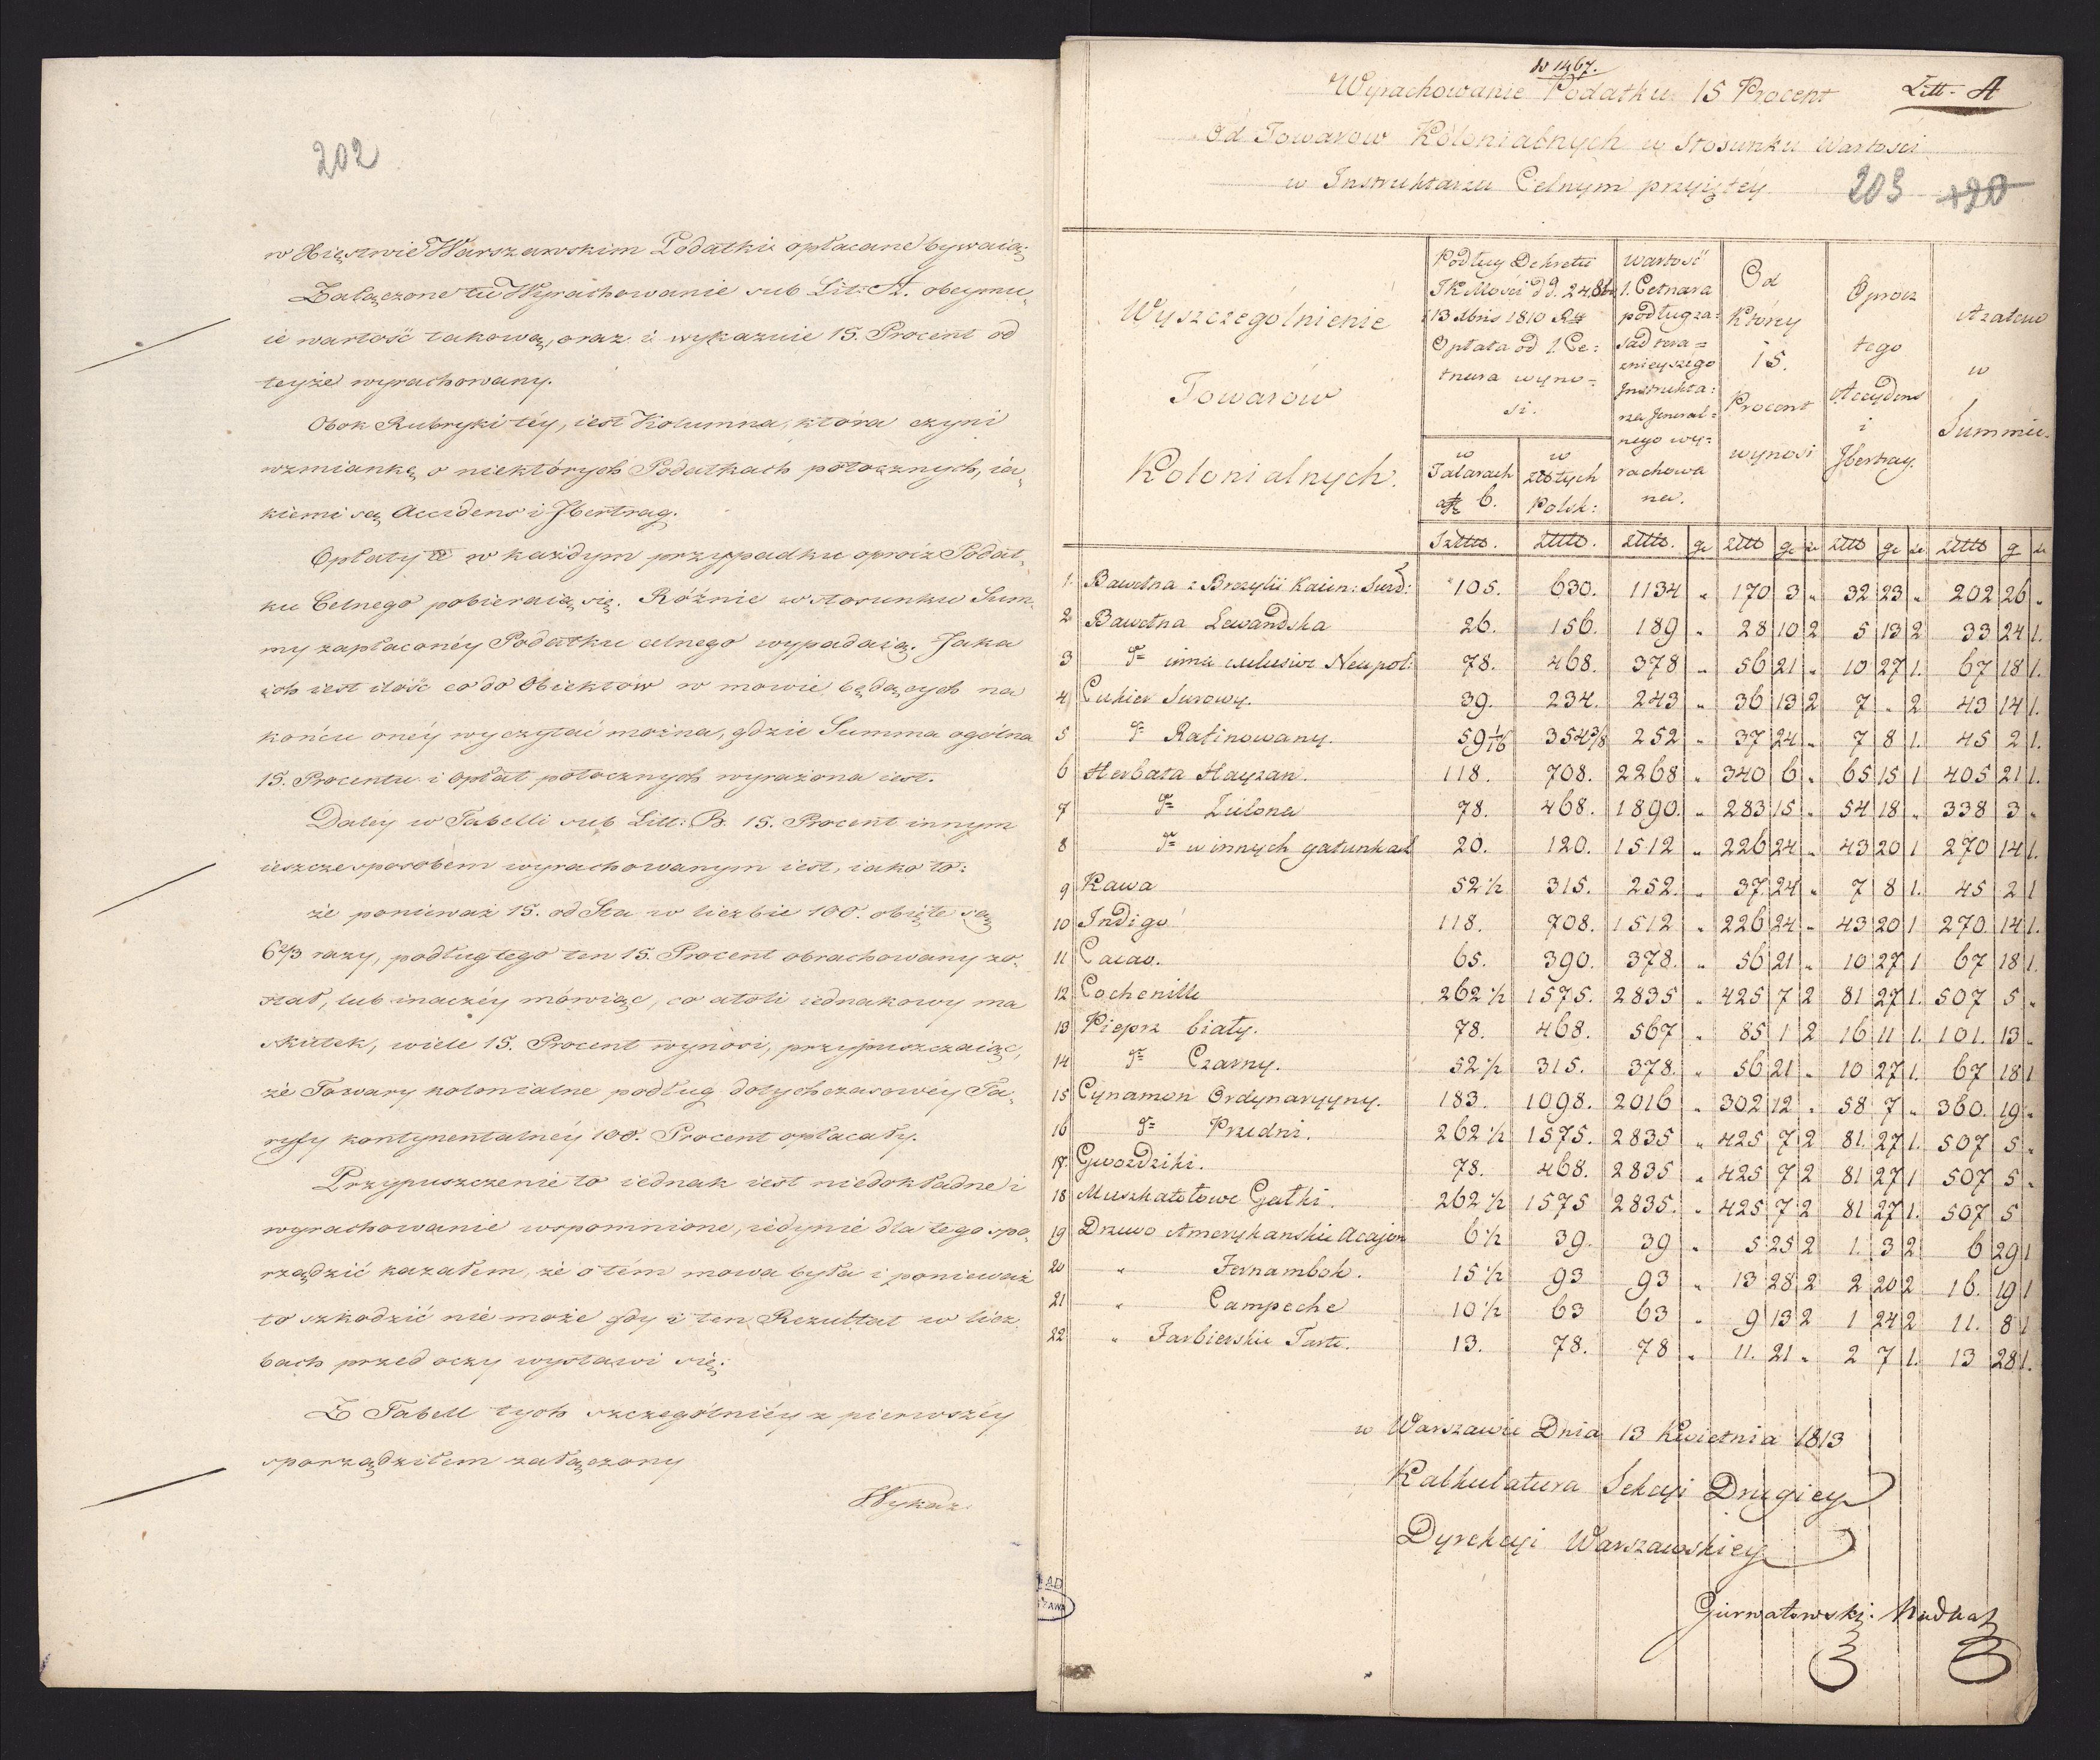 202
w Xięstwie Warszawskim Podatki opłacane bywaią.
Załączone tu Wyrachowanie sub Lit: A. obeymu„
ie wartość takową, oraz i wykazuie 15. Procent od
teyże wyrachowany.
Obok Rubryki téy, iest Kolumna, która czyni
wzmiankę o niektórych Podatkach potocznych, ia„
kiemi są Accidens i Ibertrag.
Opłaty te w każdym przypadku oprócz Podat„
ku Celnego pobieraią się. Różnie w stosunku Sum„
my zapłaconéy Podatku celnego wypadaią. Jaka
ich iest ilość co do Obiektów w mowie będących na
końcu onéy wyczytać można, gdzie Summa ogólna
15. Procentu i opłat potocznych wyrażona iest.
Daléy w Tabelli sub Litt: B. 15. Procent innym
ieszcze sposobem wyrachowanym iest, iako to:
że ponieważ 15. od Sta w liczbie 100. obięte są
6 2/3 razy, podług tego ten 15. Procent obrachowany zo„
stał, lub inaczéy mówiąc, co atoli iednakowy ma
skutek, wiele 15. Procent wynosi, przypuszczaiąc,
że Towary kolonialne podług dotychczasowéy Ta„
ryfy kontynentalnéy 100. Procent opłacały.
Przypuszczenie to iednak iest niedokładne i
wyrachowanie wspomnione, iedynie dla tego spo„
rządzić kazałem, że o tém mowa była i ponieważ
to szkodzić nie może gdy i ten Rezultat w licz„
bach przed oczy wystawi się.
Z Tabell tych szczególniéy z pierwszéy
sporządziłem załączony
Wykaz.
N 1467.
Wyrachowanie Podatku 15 Procent Litt. A
Od Towarow Kolonialnych w Stosunku Wartosci
w Instruktarzu Celnym przyiętéy. 203 120
Wyszczególnienie
Towarów
Kolonialnych.
Podług Dekretu
JKMości d d. 24. 8b
13 Xbris 1810 R
Opłata od 1. Ce:
tnara wyno=
si.
w Talarach a 6.
w złotych Polsk:
Wartość
1. Cetnara
podług za:
sad tera=
znieyszego
Instrukta:
rza general=
nego wy=
rachowa
na.
Od
Którey
15.
Procent
wynosi
Oprócz
tego
Accydens
i
Ibertrag.
A zatem
w
Summie.
1. Bawełna z Brezylii Kaien: Surd: 105. 630. 1134 „ 170 3 „ 32 23 „ 202 26 „
2 Bawełna Lewandska 26. 156. 189 „ 28 10 2 5 13 2 33 24 1.
3 d= inna exlusive Neapol: 78. 468. 378 „ 56 21 „ 10 27 1. 67 18 1.
4 Cukier Surowy. 39. 234. 243 „ 36 13 2 7 „ 2 43 14 1.
5 d= Rafinowany. 59 1/16 354 3/8 252 „ 37 24 „ 7 8 1. 45 2 1.
6 Herbata Hayzan. 118. 708. 2268 „ 340 6 „ 65 15 1 405 21 1.
7 d= Zielona 78. 468. 1890. „ 283 15 „ 54 18 „ 338 3 „
8 d= w innych gatunkach 20. 120. 1512 „ 226 24 „ 43 20 1 270 14 1.
9 Kawa 52 1/2 315. 252. „ 37 24 „ 7 8 1. 45 2 1
10 Indigo 118. 708. 1512 „ 226 24 „ 43 20 1 270. 14 1.
11 Cacao. 65. 390. 378. „ 56 21 „ 10 27 1 67 18 1.
12 Cochenille 262 1/2 1575. 2835 „ 425 7 2 81 27 1. 507 5 „
13 Pieprz biały. 78. 468. 567 „ 85 1 2 16 11 1. 101. 13 „
14 d= Czarny. 52 1/2 315. 378. „ 56 21 „ 10 27 1. 67 18 1
15 Cynamon Ordynaryyny. 183. 1098. 2016 „ 302 12 „ 58 7 „ 360. 19 „
16 d= Przedni. 262 1/2 1575. 2835 „ 425 7 2 81. 27 1. 507 5 „
17. Gwozdziki. 78. 468. 2835 „ 425 7 2 81 27 1 507 5 „
18 Muszkatołowe Gałki. 262 1/2 1575 2835. „ 425 7 2 81 27 1. 507 5
19 Drzewo Amerykanskie Acajou 6 1/2 39. 39 „ 5 25 2 1. 3 2 6 29 1
20 „ Fernambok. 15 1/2 93 93 „ 13 28 2 2 20 2 16. 19 1
21 „ Campeche 10 1/2 63 63 „ 9 13 2 1 24 2 11. 8 1
22 „ Farbierskie Tarte. 13. 78. 78 „ 11. 21 „ 2 7 1. 13 28 1.
w Warszawie Dnia 13 Kwietnia 1813
Kalkulatura Sekcyi Drugiey
Dyrekcyi Warszawskiey